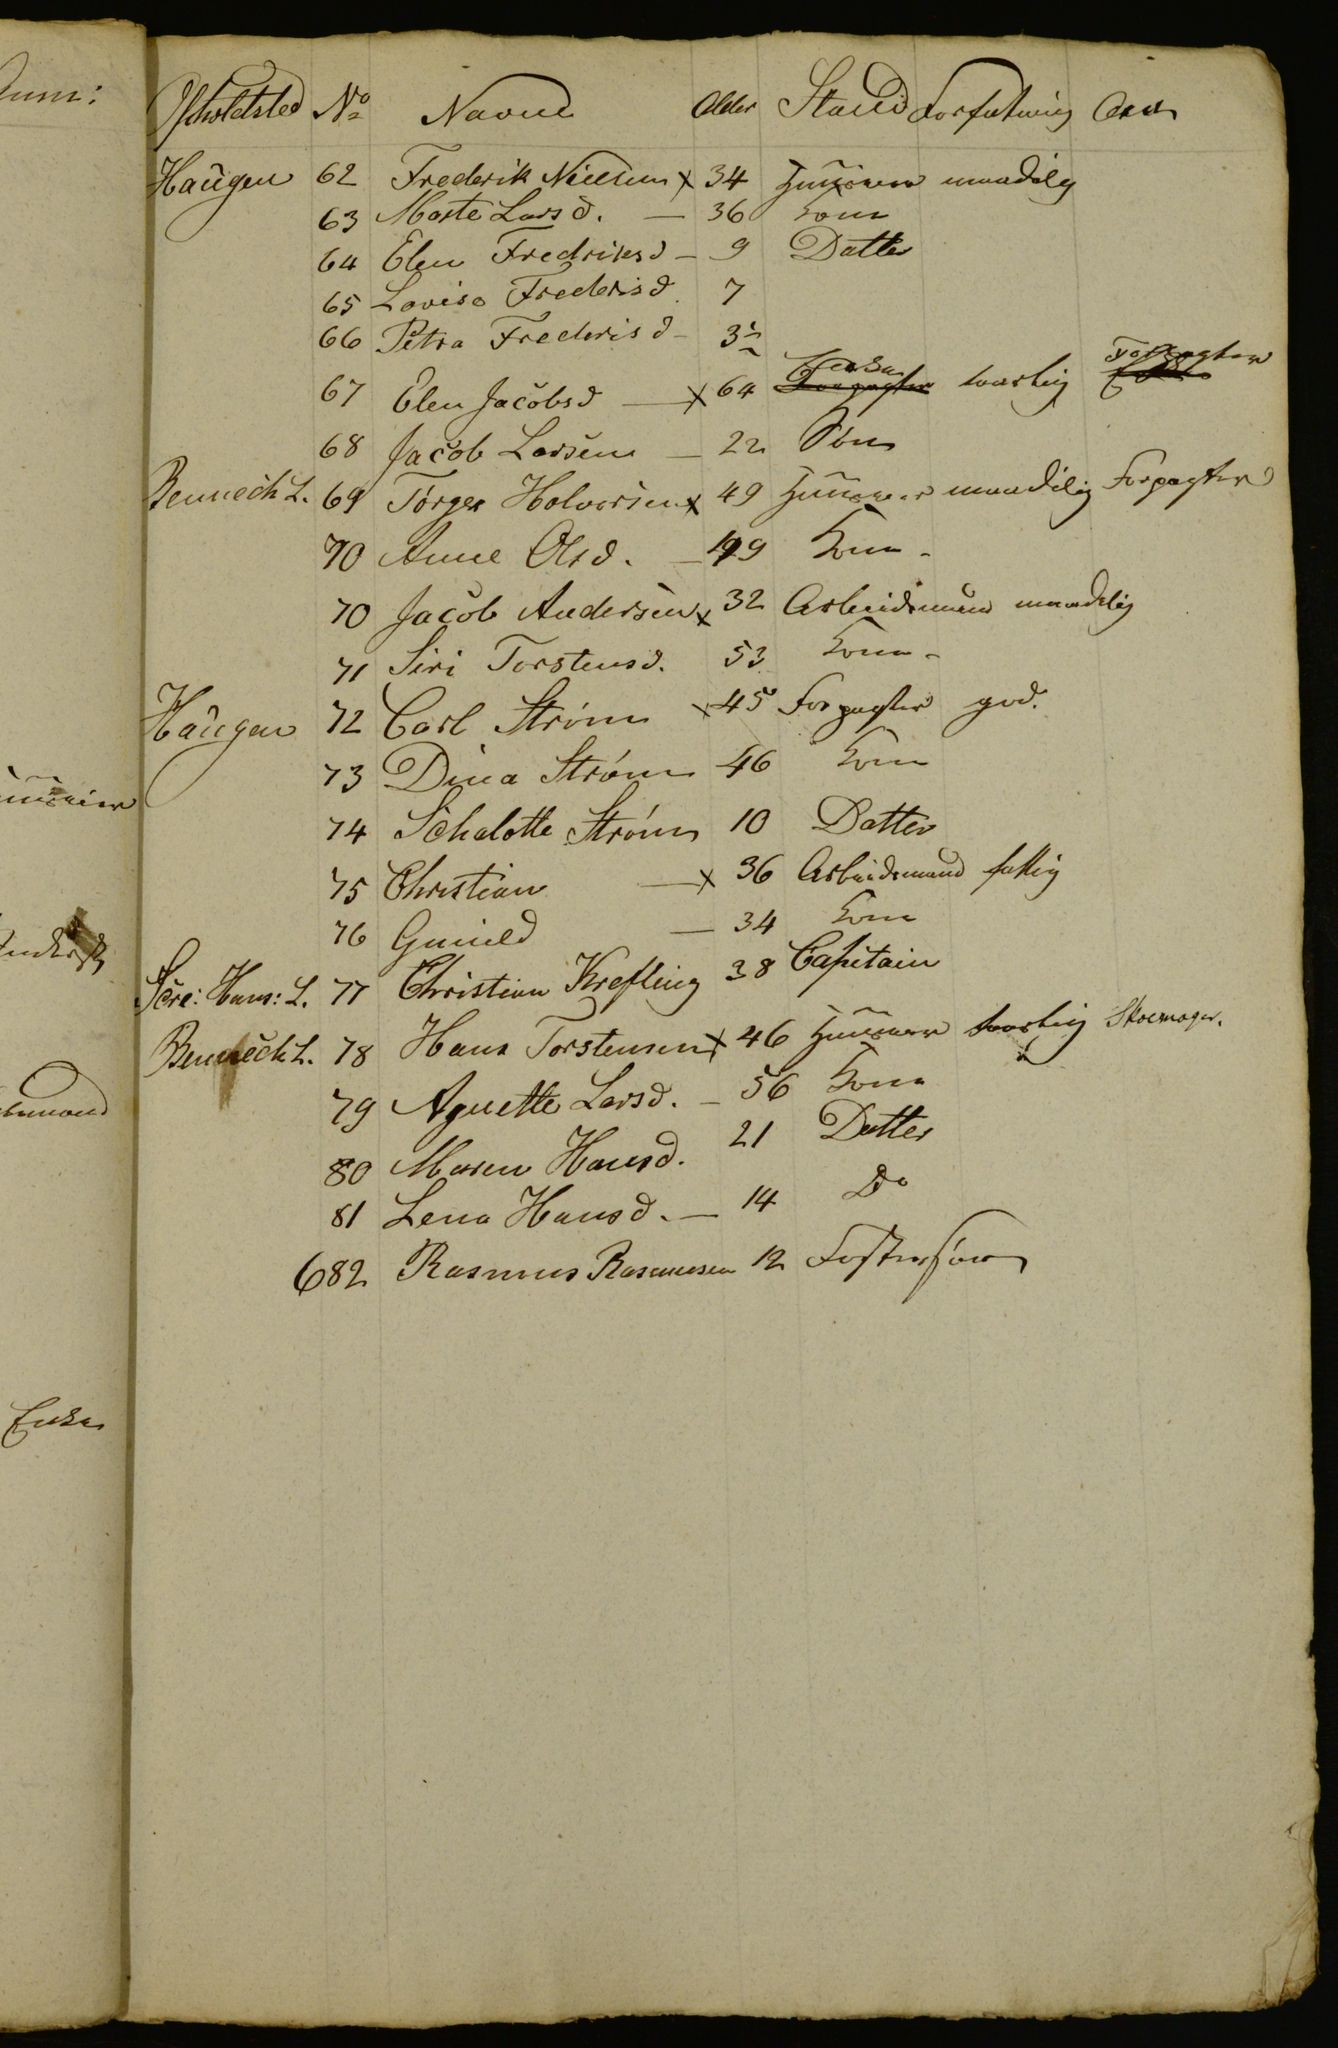 Opholdsted No Navne Alder Stand Forfatning Anm
Haugen 62 Frederik Nielsen x 34 Huusmand maadelig
63 Marte Larsd. — 36 Kone
64 Elen Fredriksd — 9 Datter
65 Lovise Frederisd. 7
66 Petra Frederisd — 3½
67 Elen Jacobsd — x 64 Enke Forpagter tarvelig Forpagter Enke
68 Jacob Larsen — 22 Søn
Bennech L. 69 Torger Holvorsen x 49 Huusmand maadelig Forpagter
70 Anne Olsd. — 49 Kone -
70 Jacob Andersen x 32 Arbeidsmand maadelig
71 Siri Torstensd. 53 Kone -
Haugen 72 Carl Strøm x 45 Forpagter god.
73 Dina Strøm 46 Kone
74 Schalotte Strøm 10 Datter
75 Christian — x 36 Arbeidsmand fattig
76 Gunild — 34 Kone
Scre: Hans: L. 77 Christian Krefting 38 Capitain
Bennech L. 78 Hans Torstensen x 46 Huusmand tarvelig Skoemager.
79 Agnette Larsd. — 56 Kone
80 Maren Hansd. 21 Datter
81 Lena Hansd. — 14 Do
682 Rasmus Rasmusen 12 Fostersøn
Enke